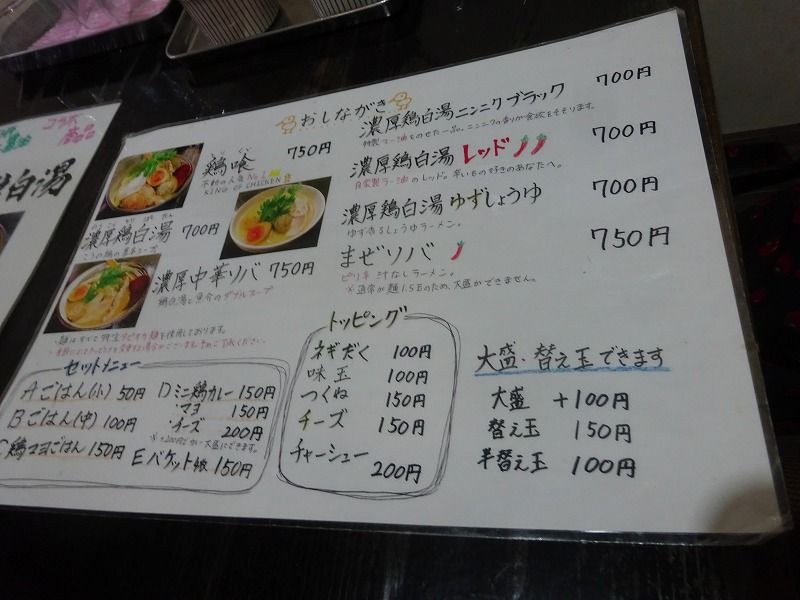 コラボ
商品
白湯
おしながき
鶏喰 750円
不動の人気No.1
KING OF CHICKEN
濃厚鶏白湯 700円
濃厚中華ソバ 750円
鶏白湯と魚介のダブルスープ
濃厚鶏白湯ニンニクブラック 700円
濃厚鶏白湯レッド 700円
自家製ラー油のレッド。辛いもの好きのあなたへ。
濃厚鶏白湯ゆずしょうゆ 700円
ゆず香るしょうゆラーメン。
まぜソバ 750円
ピリ辛 汁なしラーメン。
※通常が麺1.5玉のため、大盛ができません。
セットメニュー
Aごはん(小) 50円
Bごはん(中) 100円
C鶏マヨごはん 150円
Dミニ鶏カレー 150円
マヨ 150円
チーズ 200円
Eバケット 150円
トッピング
ネギだく 100円
味玉 100円
つくね 150円
チーズ 150円
チャーシュー 200円
大盛・替え玉できます
大盛 +100円
替え玉 150円
半替え玉 100円